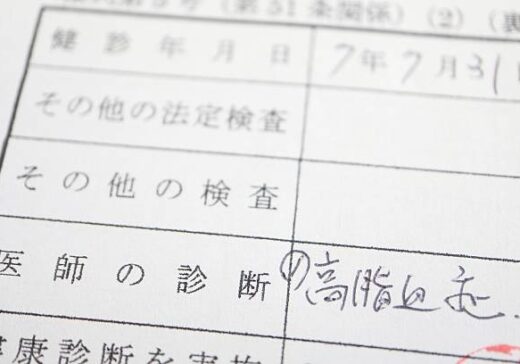 第5号（第51条関係）（2）（裏
健診年月日 7年7月31日
その他の法定検査
その他の検査
医師の診断 ① 高脂血症.
健康診断を実施